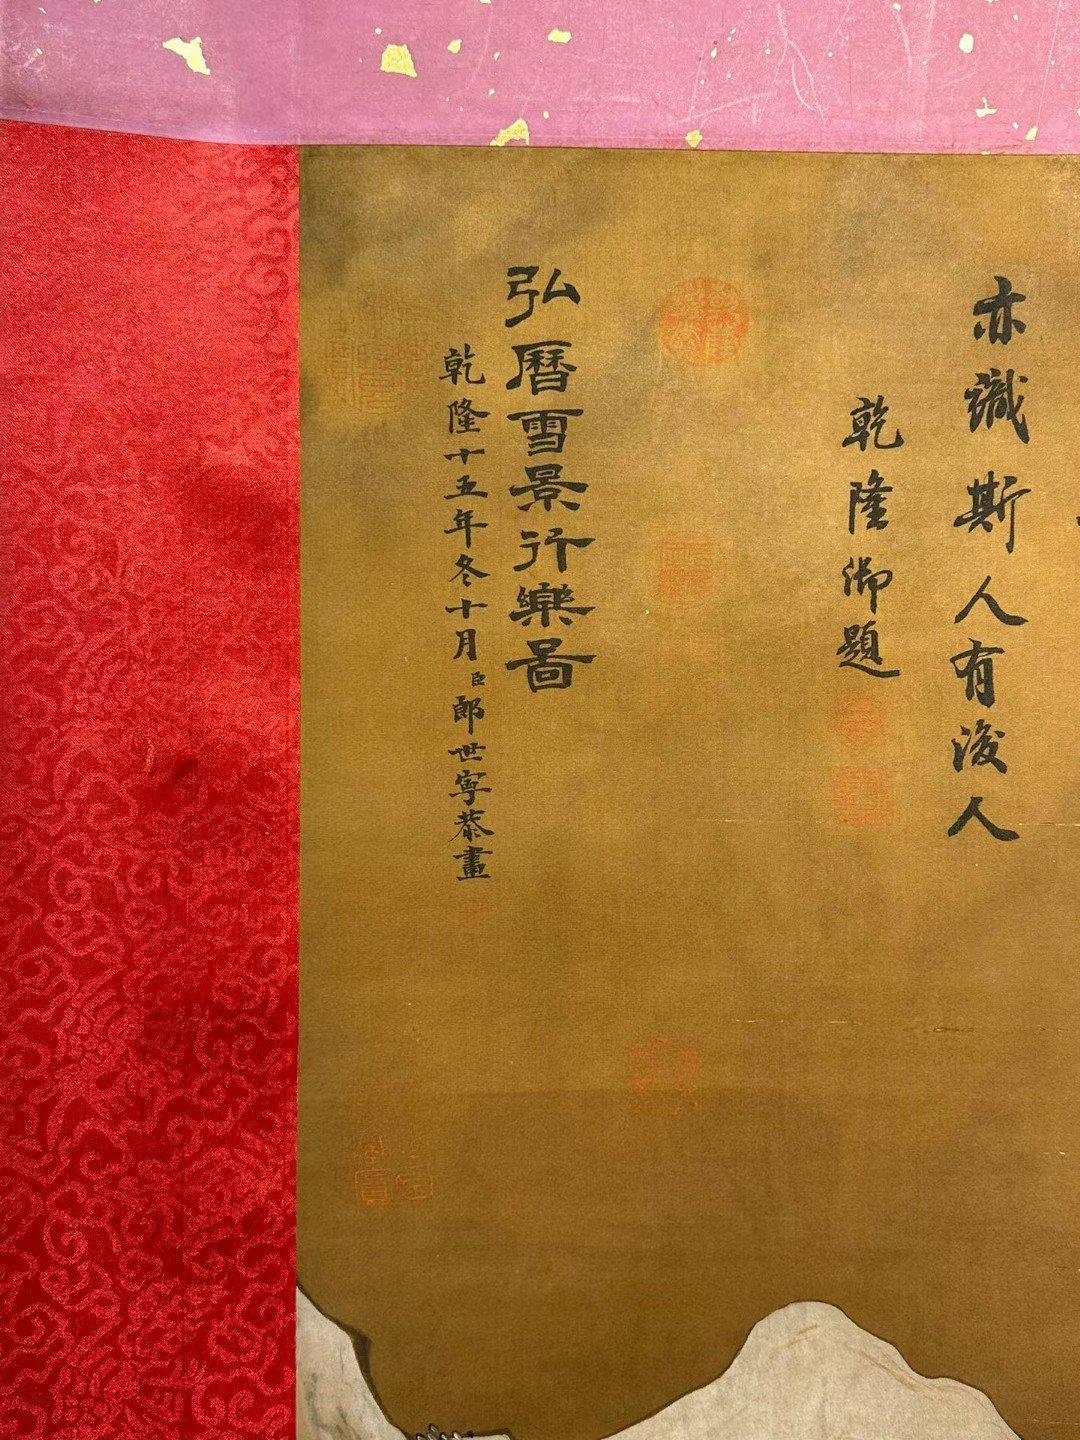 亦識斯人有後人
乾隆御題
弘曆雪景行樂圖
乾隆十五年冬十月臣郎世寧恭畫